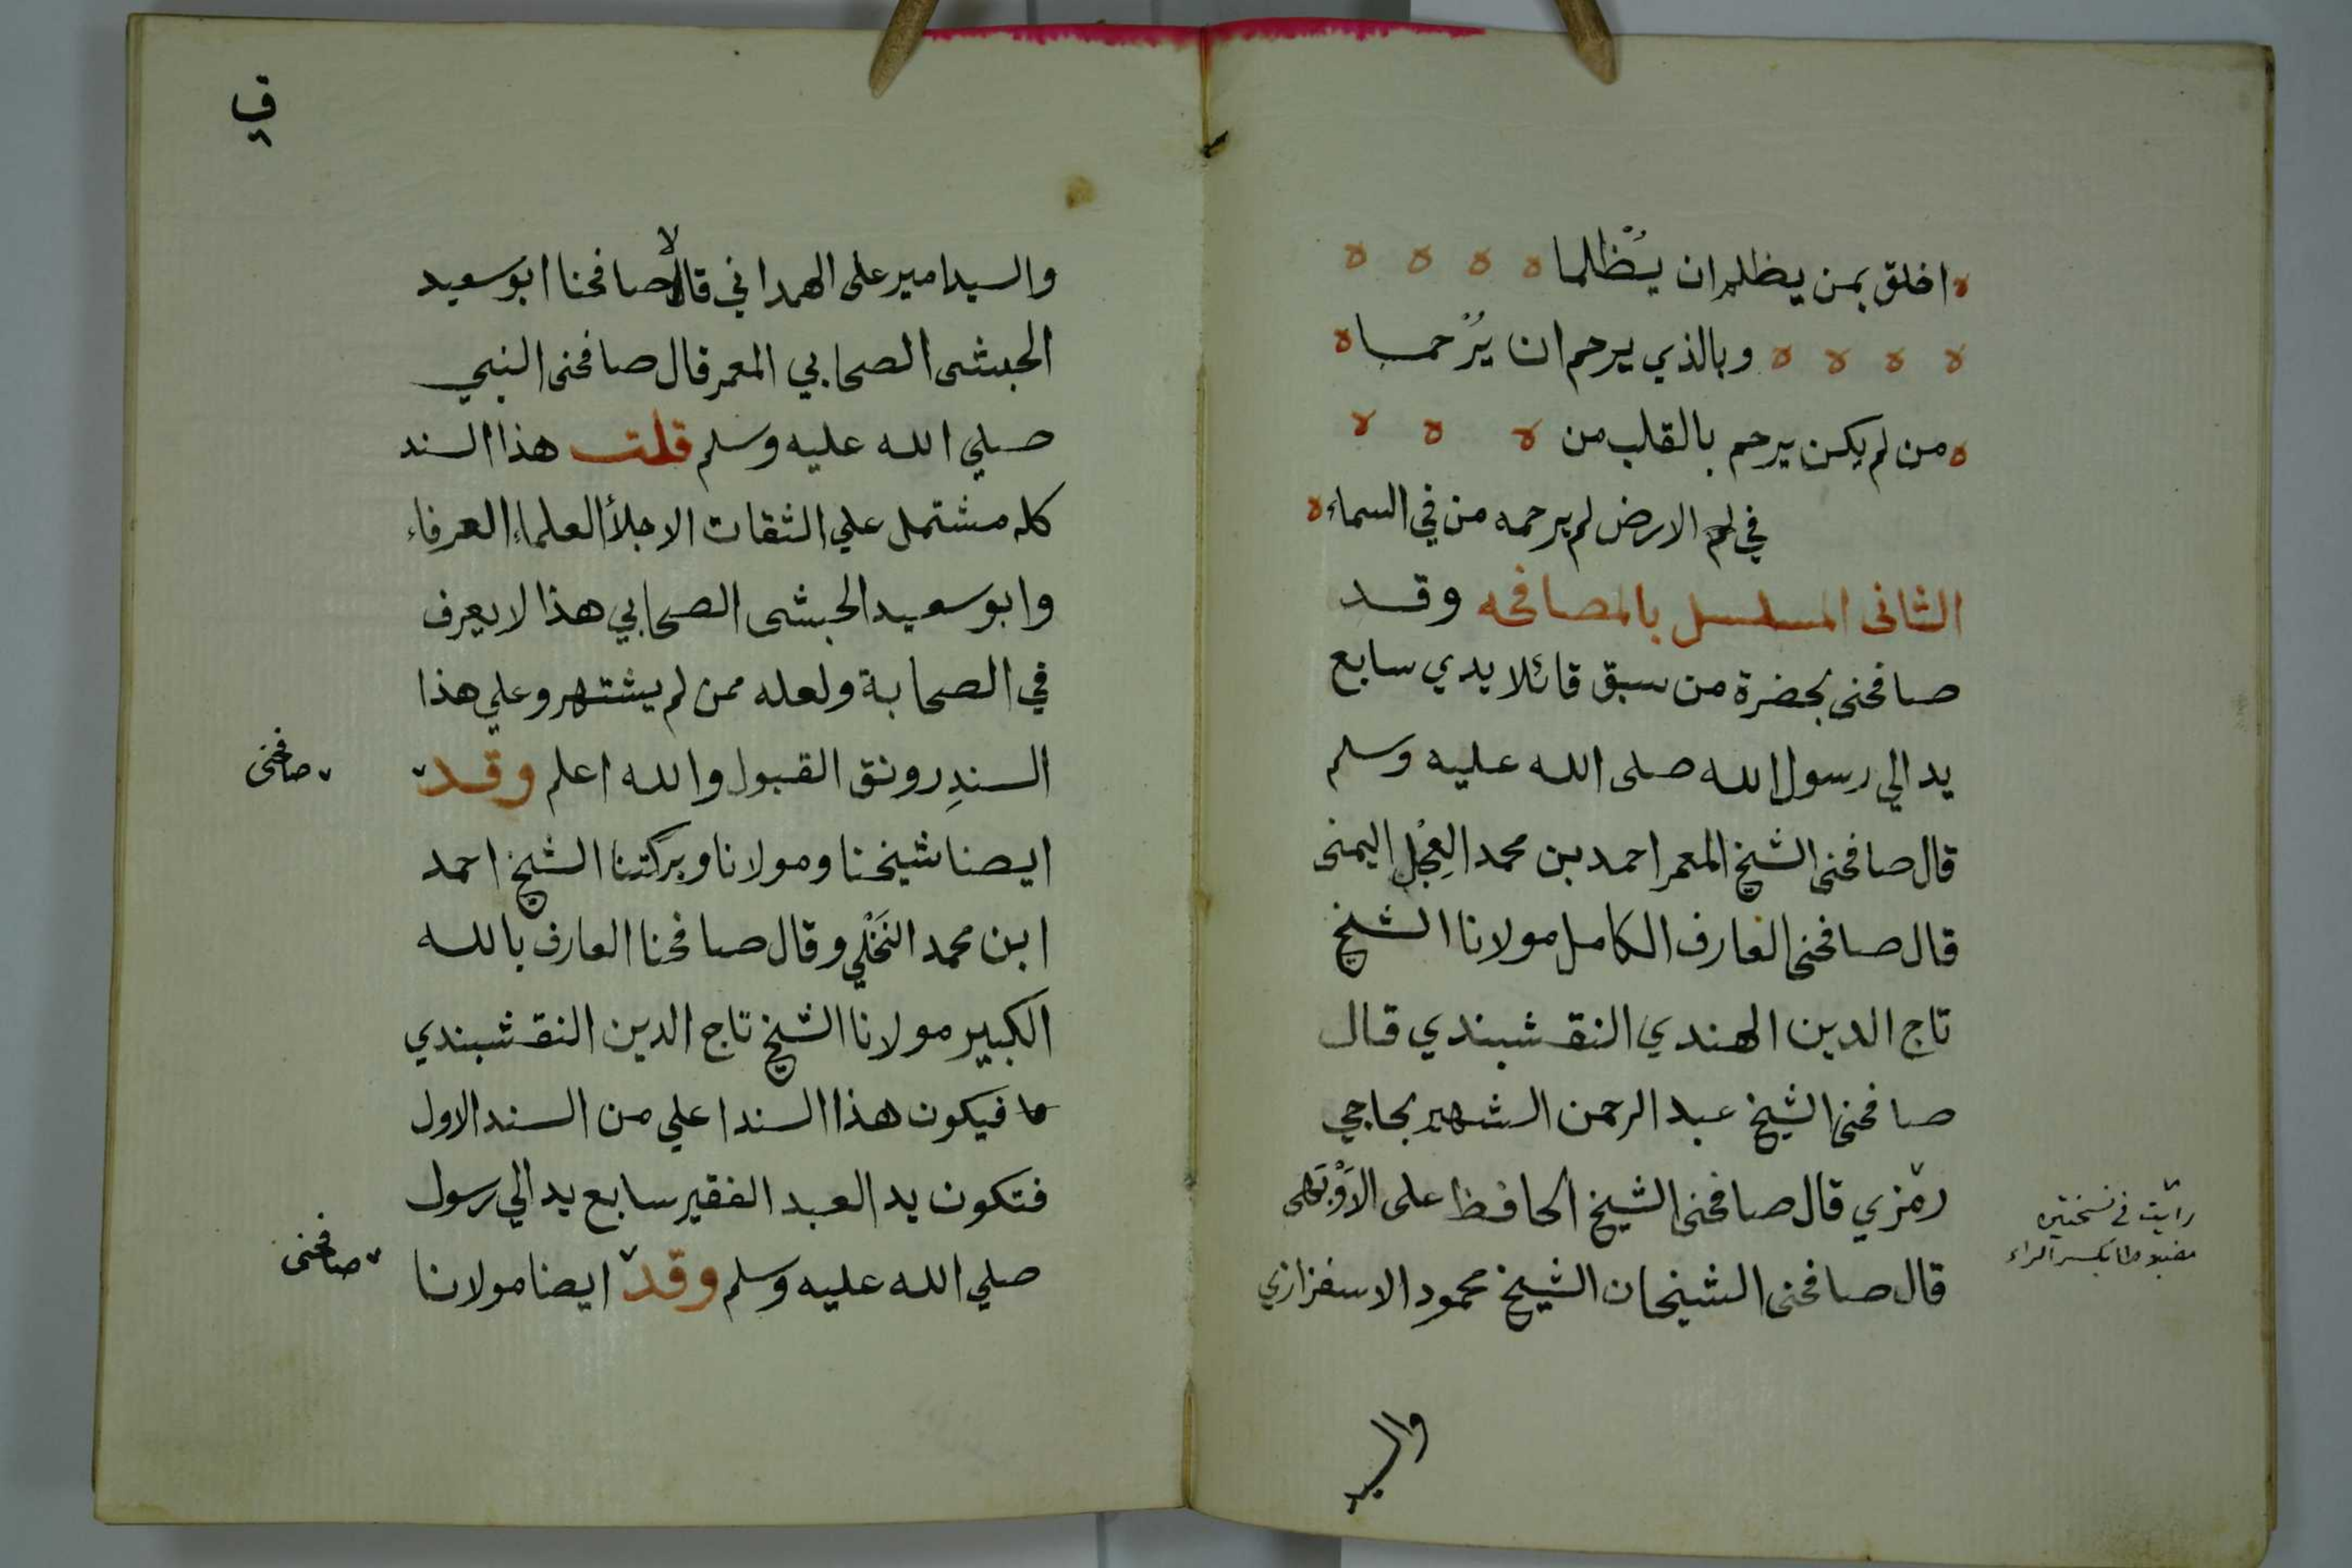 اخلق بمن يظلم ان يُظلما
وبالذي يرحم ان يُرحما
من لم يكن يرحم بالقلب من
في الارض لم يرحمه من في السماء
الثانى المسلسل بالمصافحه وقد
صافحنى بحضرة من سبق قائلا يدي سابع
يد الي رسول الله صلى الله عليه وسلم
قال صافحنى الشيخ المعمر احمد بن محمد العِجْل اليمنى
قال صافحنى العارف الكامل مولانا الشيخ
تاج الدين الهندي النقشبندي قال
صافحنى الشيخ عبد الرحمن الشهير بحاجي
رمزي قال صافحنى الشيخ الحافظ على الاَوْبَهى
قال صافحنى الشيخان الشيخ محمود الاسفزازي
رايت في نسختين
مضبوطا بكسر الراء
والسيد
في
والسيد امير على الهمداني قالا صافحنا ابو سعيد
الحبشى الصحابي المعمر قال صافحنى النبي
صلي الله عليه وسلم قلت هذا السند
كله مشتمل علي الثقات الاجلأ العلماء العرفاء
وابو سعيد الحبشى الصحابي هذا لا يعرف
في الصحابة ولعله ممن لم يشتهر وعلي هذا
السندِ رونق القبول والله اعلم وقد
صافحنى
ايضا شيخنا ومولانا وبركتنا الشيخ احمد
ابن محمد النَخْلي وقال صافحنا العارف بالله
الكبير مولانا الشيخ تاج الدين النقشبندي
فيكون هذا السند اعلي من السند الاول
فتكون يد العبد الفقير سابع يد الي رسول
صلي الله عليه وسلم وقد ايضا مولانا
صافحنى